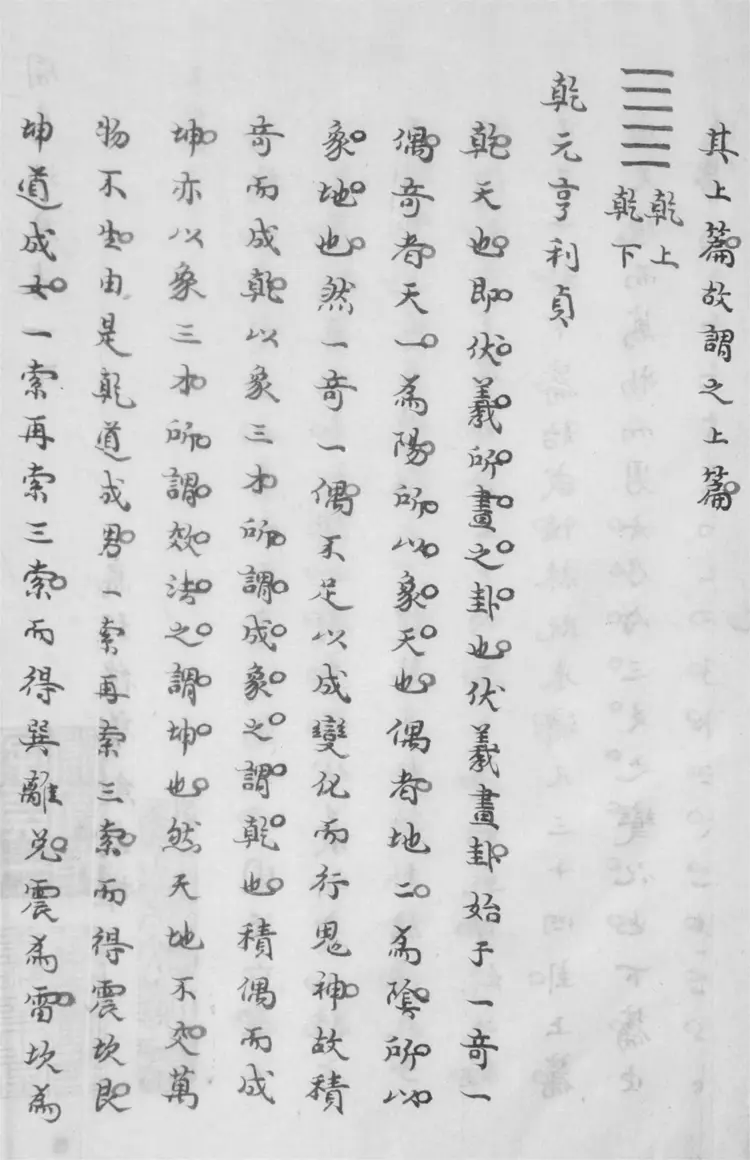 其上篇故謂之上篇
乾上
乾下
乾元亨利貞
乾天也即伏羲所畫之卦也伏羲畫卦始于一奇一
偶奇者天一為陽所以象天也偶者地二為陰所以
象地也然一奇一偶不足以成變化而行鬼神故積
奇而成乾以象三才所謂成象之謂乾也積偶而成
坤亦以象三才所謂效法之謂坤也然天地不交萬
物不生由是乾道成男一索再索三索而得震坎艮
坤道成女一索再索三索而得巽離兌震為雷坎為